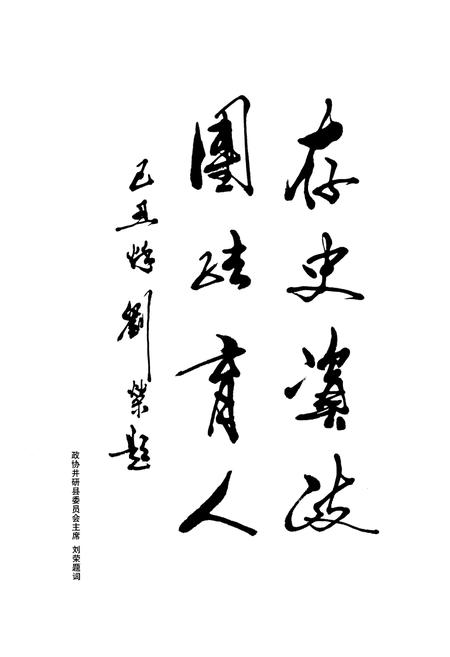 存史資政
團結育人
己丑烽劉榮題
政协井研县委员会主席 刘荣题词